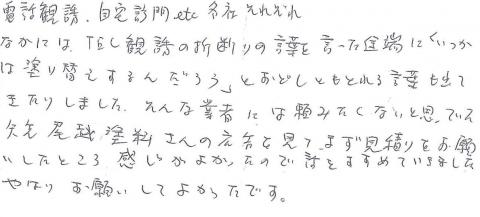 電話観誘、自宅訪門etc 各社それぞれ
なかには、TEL観誘の折断りの言葉を言った途端に「いつか
は塗り替えするんだろう」とおどしともとれる言葉も出て
きたりしました。そんな業者には頼みたくないと思っていて
屋越塗料さんの広告を見て、まず見積りをお願
いしたところ 感じがよかったので話をすすめていきました
やはり お願いしてよかったです。